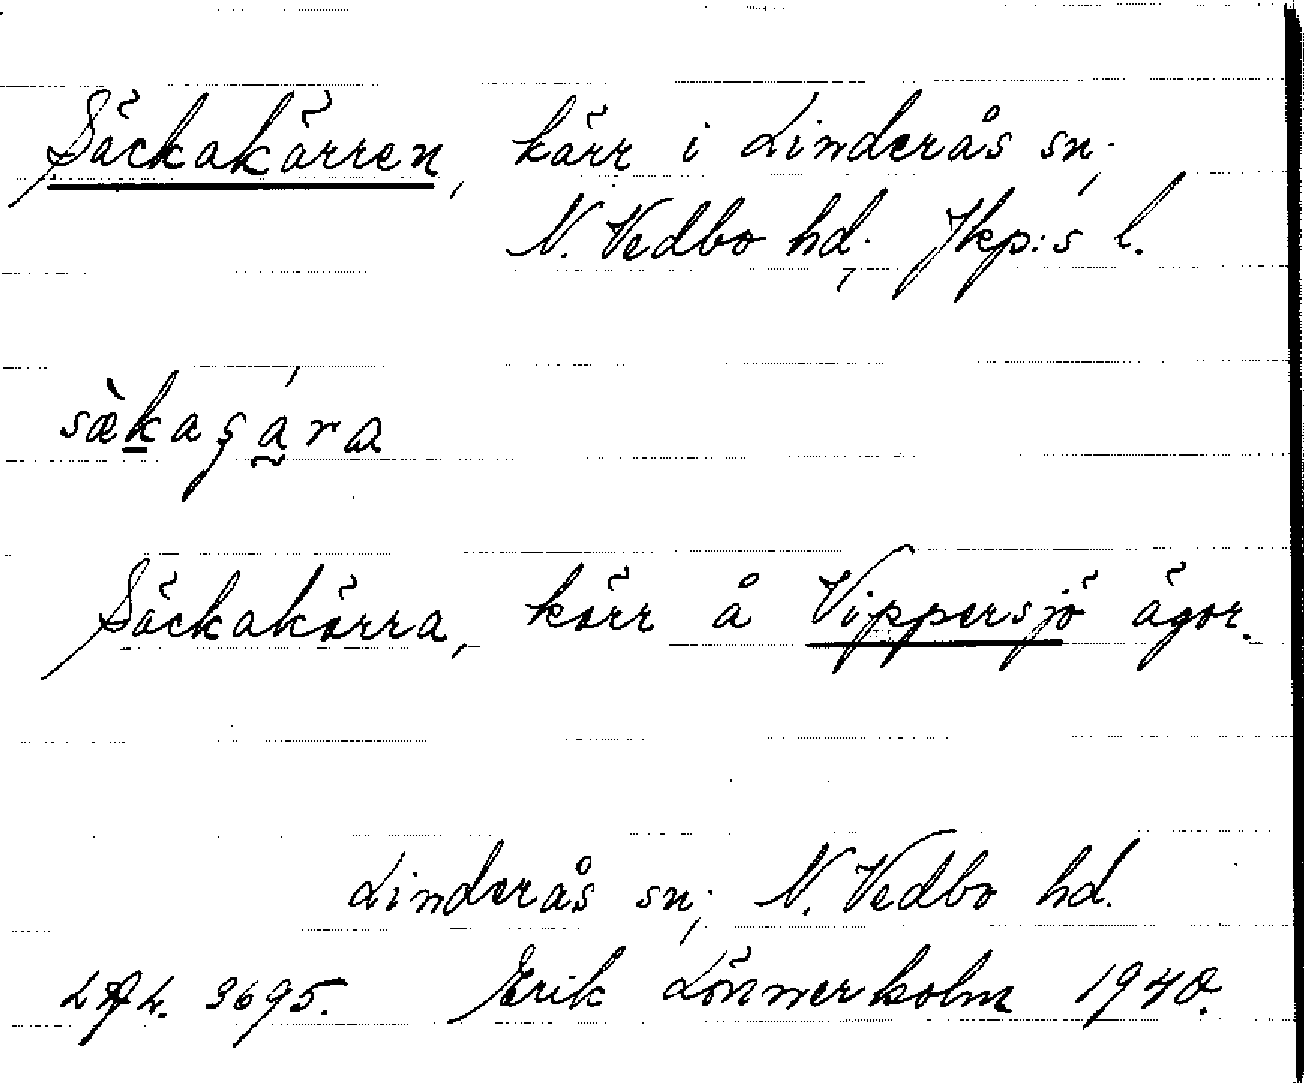 Säckakärren, kärr i Linderås sn.,
N. Vedbo hd., Jkp:s l.
sæ̀kaʂára
Säckakärra, kärr å Vippersjö ägor.
Linderås sn., N. Vedbo hd.
3695. Erik Lönnerholm 1940.